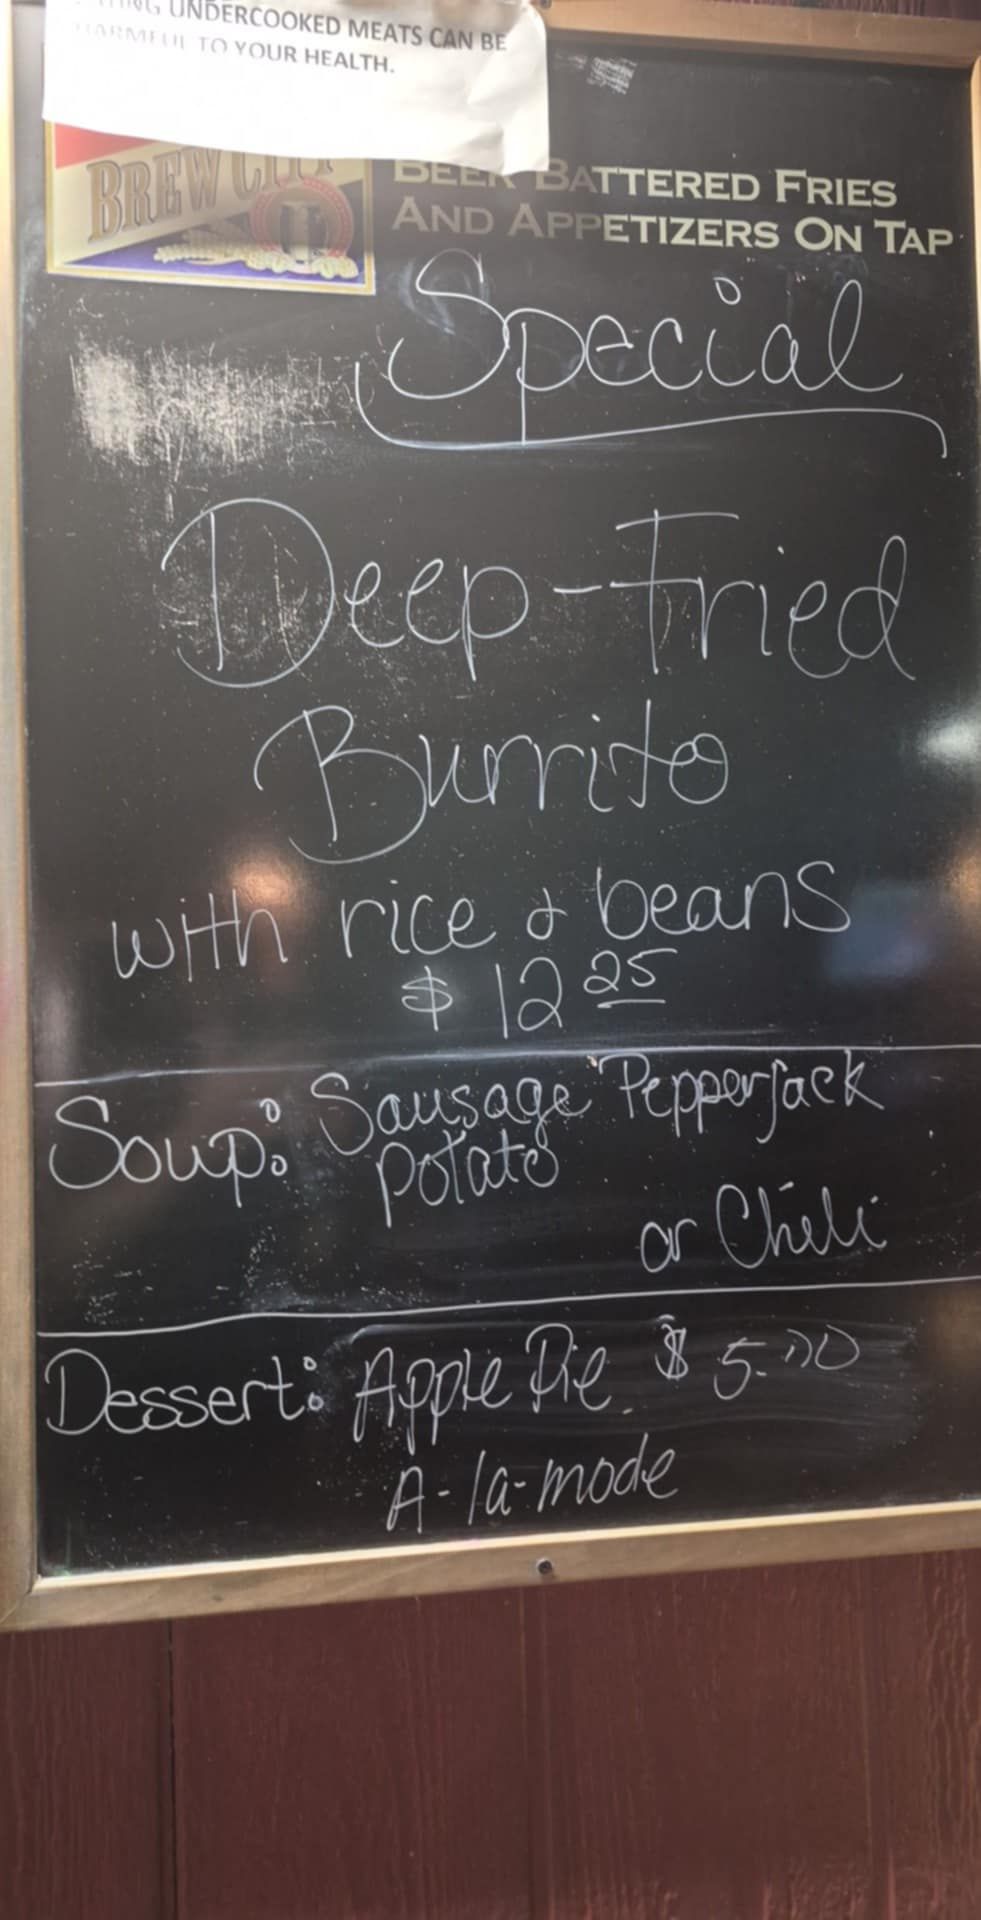 UNDERCOOKED MEATS CAN BE
HARMFUL TO YOUR HEALTH.
BREW CITY
BEER BATTERED FRIES
AND APPETIZERS ON TAP
Special
Deep-Fried
Burrito
with rice & beans
$12 25
Soup: Sausage Pepperjack
potato
or Chili
Dessert: Apple Pie $5.00
A-la-mode